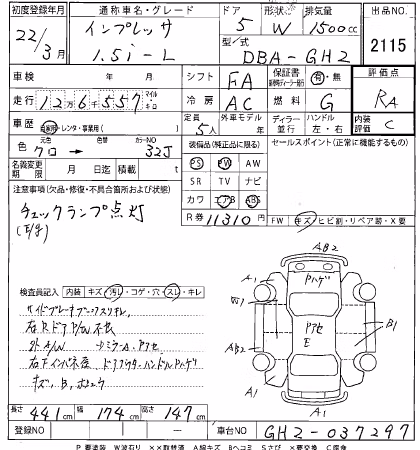 初度登録年月 通称車名・グレード ドア 形状 排気 出品NO.
22/3月 インプレッサ 5 W 1500cc 2115
1.5i-L 型式 DBA-GH2
車検 年 月 シフト FA 保証書 有・無 評価点
走行 126557 マイル Km 冷房 AC 燃料 G RA
車歴 自家用・レンタ・事業用( ) 定員 5人 外車モデル 年 ディーラー 並行 ハンドル 左・右 内装評価 C
色 クロ → 色替 カラーNO 32J 装備品(純正品に限る) セールスポイント(正常に機能するもの)
名義変更期限 月 日迄 積載 t PS PW AW
注意事項(欠品・修復・不具合箇所および状態) SR TV ナビ
チェックランプ点灯 カワ エアB ABS
(E/g) R券 11310円 FW キズ・ヒビ割・リペア跡・X要
検査員記入 内装 キズ・汚リ・コゲ・穴・スレ・キレ
サイドブレーキブーツスリキレ
右R.ドアP/W不良
外A/W ミラーA.アセ
キズ、B、
AB2
A1 Pハゲ A1
W1 Pアセ B1
AB2 E
A1 A1
長さ 441cm 幅 174cm 高さ 147cm
登録NO 車台NO GH2-037297
P要塗装 W波石リ ××取替済 A線キズ Bヘコミ Sさび ×要交換 C腐食